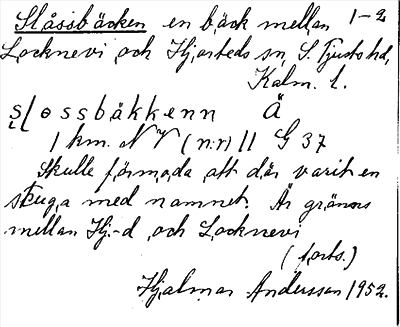 Slåssbäcken en bäck mellan 1-2
Locknevi och Hjorteds sn, S. Tjusts hd,
Kalm. l.
s̜ɭossbäkkenn Ä
1 km. NV (n:r) 11 G 37
Skulle förmoda att där varit en
stuga med namnet. Är gräns
mellan Hj-d och Locknevi
(forts.)
Hjalmar Andersson 1952.